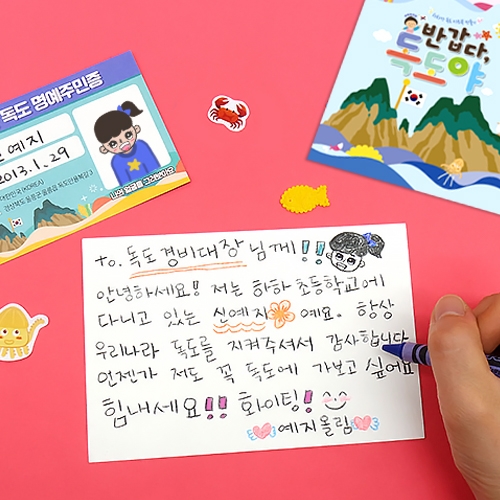 독도 명예주민증
예지
2013.1.29
대한민국 (KOREA)
반갑다,
독도야
to. 독도 경비대장 님께!!
안녕하세요! 저는 하하 초등학교에
다니고 있는 신예지 예요. 항상
우리나라 독도를 지켜주셔서 감사합니다
언젠가 저도 꼭 독도에 가보고 싶어요
힘내세요!! 화이팅!
예지올림